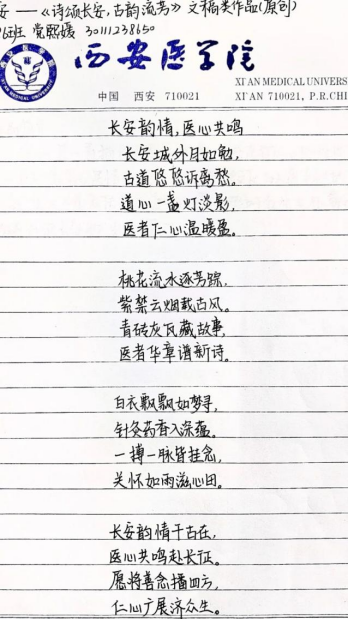 安——《诗颂长安,古韵流芳》文稿类作品(原创)
班 党熙媛 30111238650
西安医学院
XI'AN MEDICAL UNIVERS
中国 西安 710021 XI'AN 710021, P.R.CHI
长安韵情,医心共鸣
长安城外月如勉,
古道悠悠诉离愁。
道心一盏灯淡影,
医者仁心温暖盈。
桃花流水逐芳踪,
紫禁云烟载古风。
青砖灰瓦藏故事,
医者华章谱新诗。
白衣飘飘如梦寻,
针灸药香入深蕴。
一搏一脉皆挂念,
关怀如雨滋心田。
长安韵情千古在,
医心共鸣赴长征。
愿将善念播四方,
仁心广展济众生。